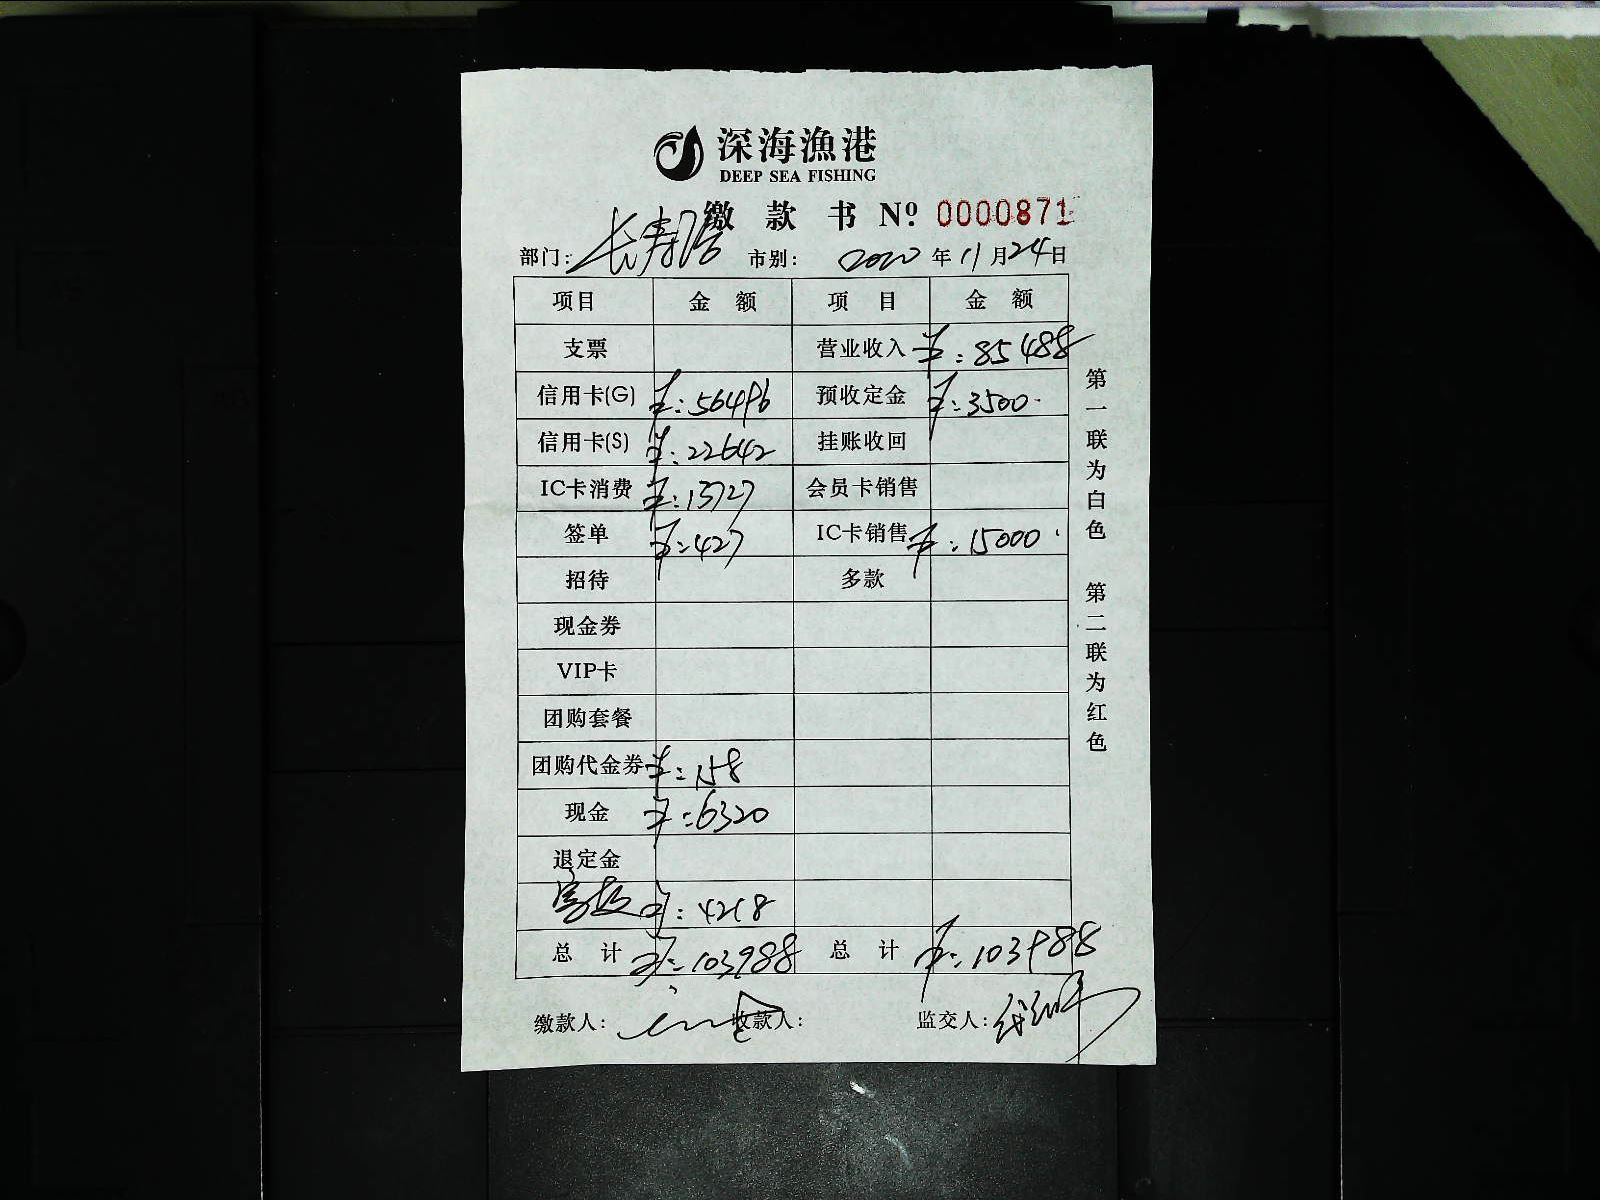 深海漁港
DEEP SEA FISHING
缴款书 Nº 0000871
部门: 长寿 市别: 2020年11月24日
项目 金额 项目 金额
支票 营业收入 ¥:85488
信用卡(G) ¥:56496 预收定金 ¥:3500
信用卡(S) ¥:22642 挂账收回
IC卡消费 ¥:13727 会员卡销售
签单 ¥:427 IC卡销售 ¥:15000
招待 多款
现金券
VIP卡
团购套餐
团购代金券 ¥:158
现金 ¥:6320
退定金
¥:4218
总计 ¥:103988 总计 ¥:103988
缴款人: 收款人: 监交人:
第一联为白色 第二联为红色